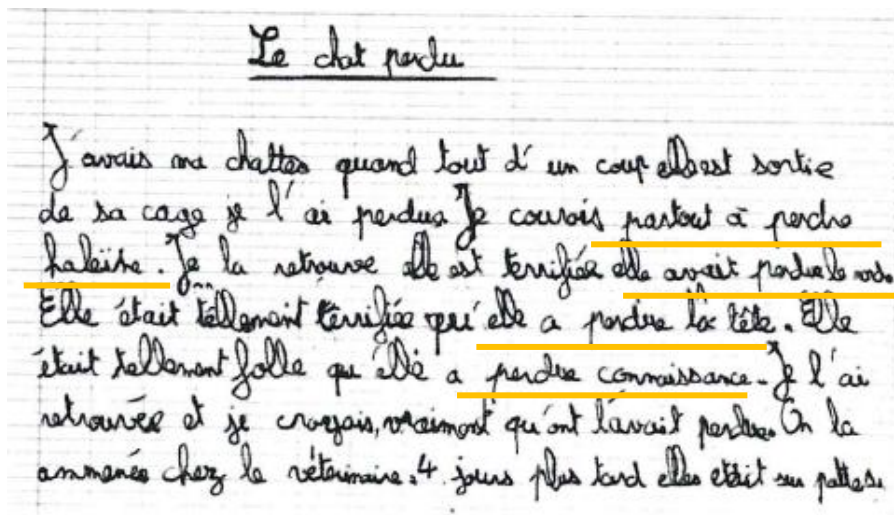 Le chat perdu
J'avais ma chattes quand tout d'un coup elle est sortie
de sa cage je l'ai perdue Je courais partout à perdre
haleine. Je la retrouve elle est terrifiée elle avait perdue le nord
Elle était tellement terrifiée qu'elle a perdue la tête. Elle
était tellement folle qu'elle a perdue connaissance. Je l'ai
retrouvée et je croyais, vraiment qu'ont l'avait perdue. On la
ammenée chez le véterinaire. 4 jours plus tard elles était sur pattes.